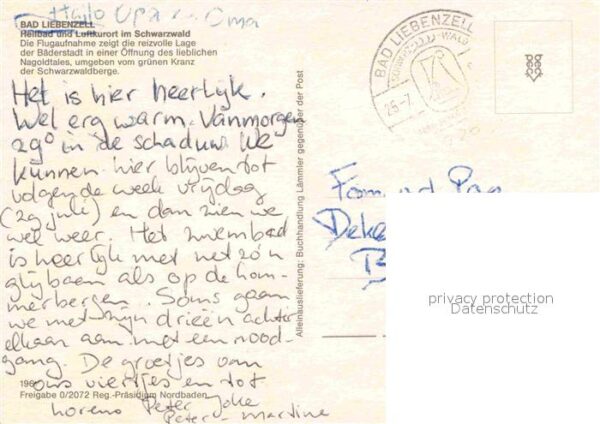 Hallo Opa en Oma
BAD LIEBENZELL
Heilbad und Luftkurort im Schwarzwald
Die Flugaufnahme zeigt die reizvolle Lage
der Bäderstadt in einer Öffnung des lieblichen
Nagoldtales, umgeben vom grünen Kranz
der Schwarzwaldberge.
Het is hier heerlijk.
Wel erg warm. Vanmorgen
29° in de schaduw. We
kunnen hier blijven tot
volgende week vrijdag
(29 juli) en dan zien we
wel weer. Het zwembad
is heerlijk met net zo'n
glijbaan als op de hom-
merbergen. Soms gaan
we met z'n drieën achter
elkaar aan met een nood-
gang. De groetjes van
ons viertjes en tot
Peter Joke
Peter-Martine
196
Freigabe 0/2072 Reg.-Präsidium Nordbaden
Alleinauslieferung: Buchhandlung Lämmler gegenüber der Post
BAD LIEBENZELL
SCHWARZWALD
26.-7.
Fam.
privacy protection
Datenschutz